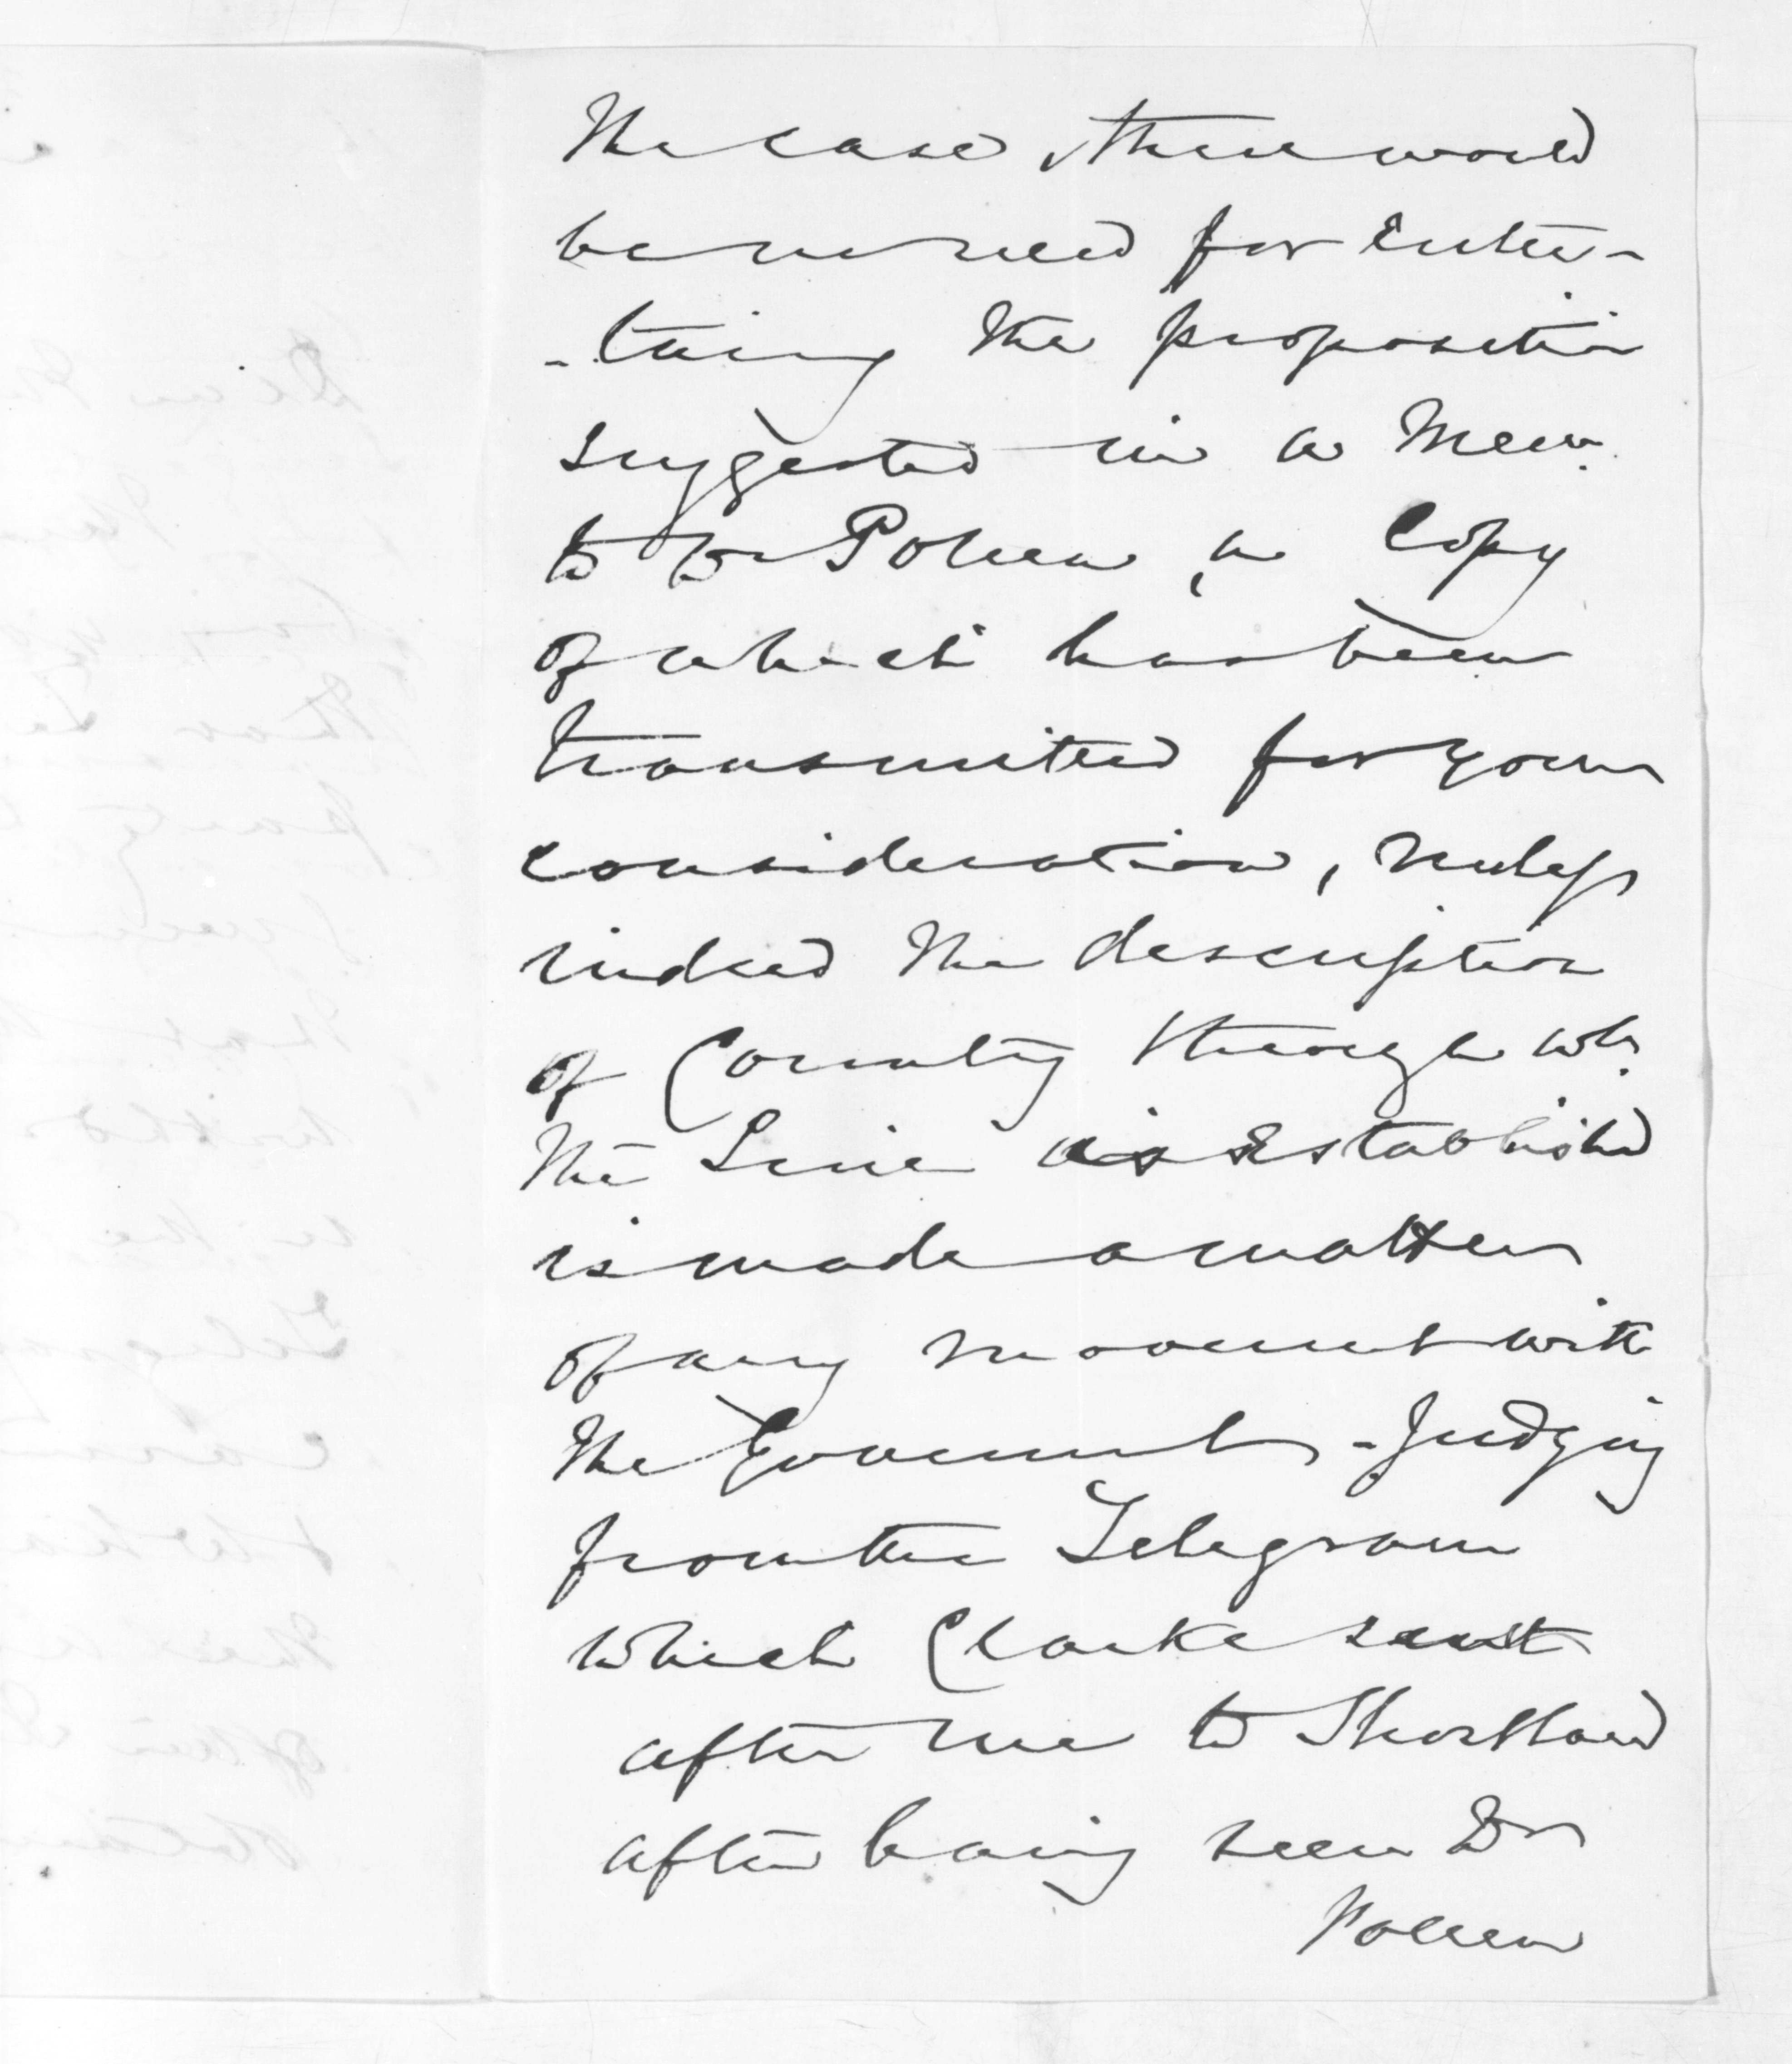 the case there would
be no need for enter-
-taing the proposition
suggested in a Mem.
to Dr Pollen, a Copy
of which has been
transmitted for your
consideration, unless
indeed the description
of Country through wh.
the Line is established
is made a matter
of any moment with
the Goverment - Judging
from the Telegram
which Clarke sent
after me to Shortland
after having seen Dr
Pollen